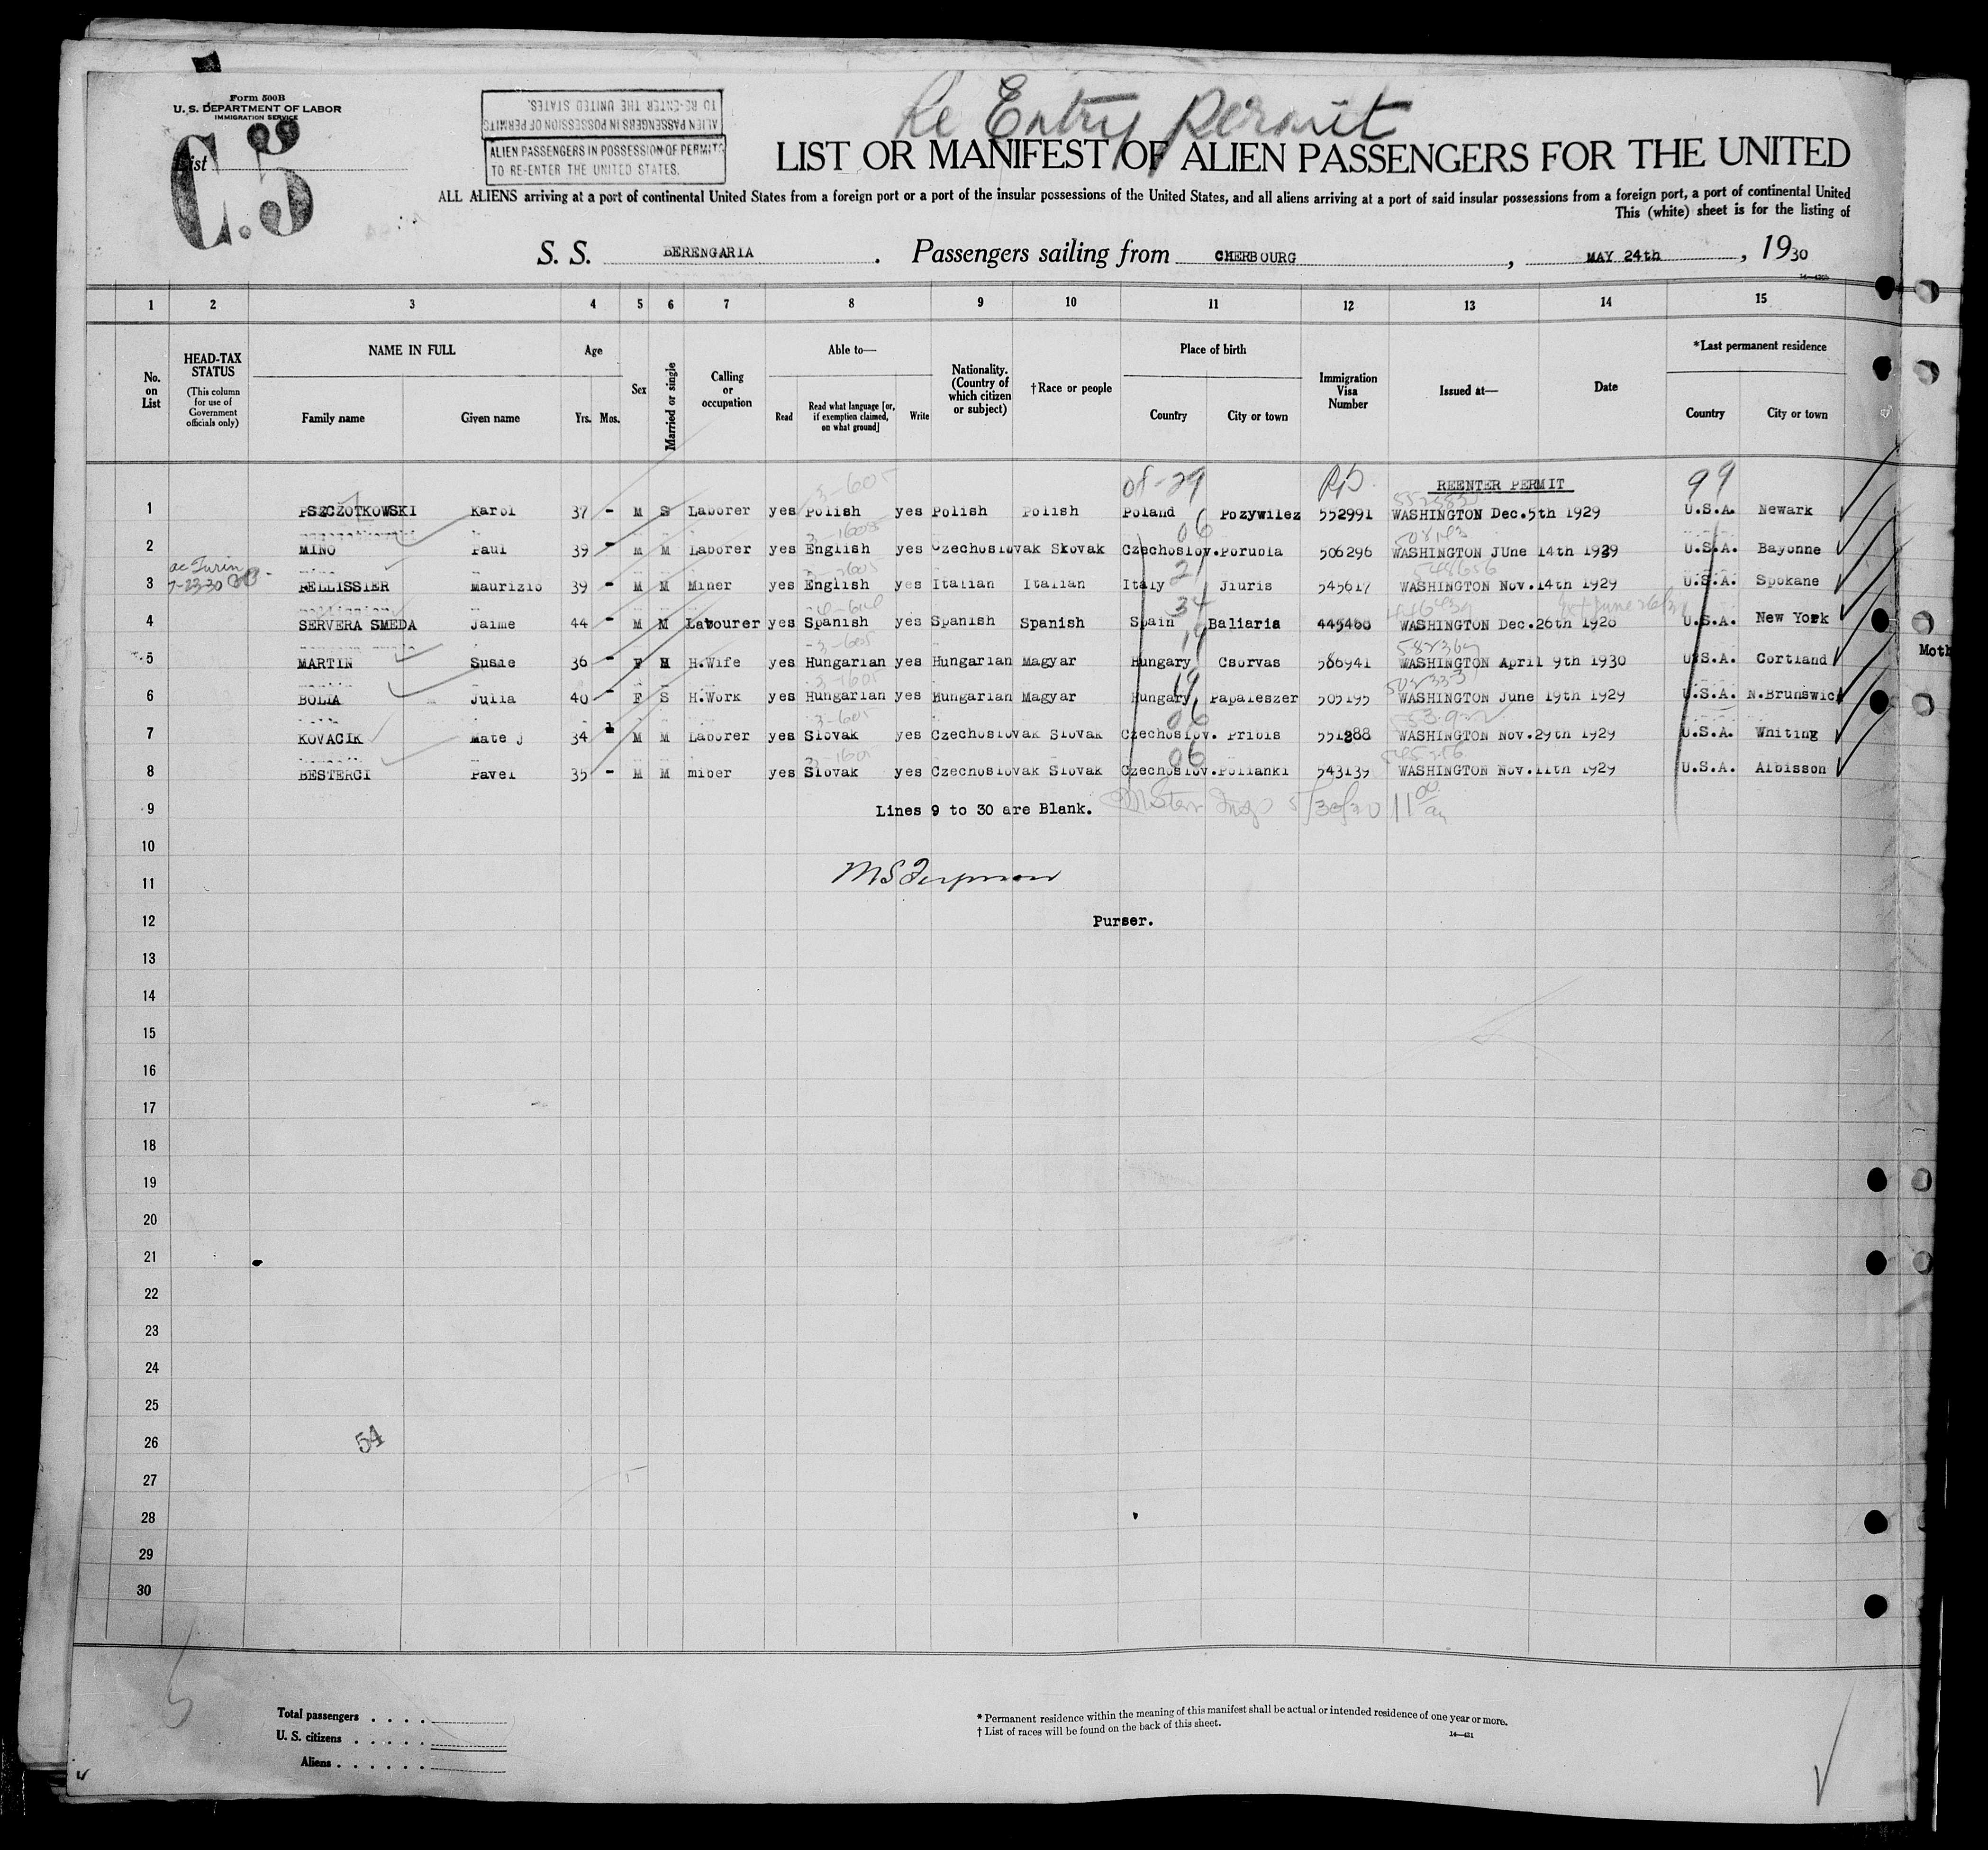 Form 500B
U. S. DEPARTMENT OF LABOR
IMMIGRATION SERVICE
List
C.5
ALIEN PASSENGERS IN POSSESSION OF PERMITS
TO RE-ENTER THE UNITED STATES.
ALIEN PASSENGERS IN POSSESSION OF PERMITS
TO RE-ENTER THE UNITED STATES.
Re Entry Permit
LIST OR MANIFEST OF ALIEN PASSENGERS FOR THE UNITED
ALL ALIENS arriving at a port of continental United States from a foreign port or a port of the insular possessions of the United States, and all aliens arriving at a port of said insular possessions from a foreign port, a port of continental United
This (white) sheet is for the listing of
S. S. BERENGARIA . Passengers sailing from CHERBOURG , MAY 24th , 1930
1 2 3 4 5 6 7 8 9 10 11 12 13 14 15
No. on List
HEAD-TAX STATUS
(This column for use of Government officials only)
NAME IN FULL
Family name Given name
Age
Yrs. Mos.
Sex
Married or single
Calling or occupation
Able to—
Read
Read what language [or, if exemption claimed, on what ground]
Write
Nationality. (Country of which citizen or subject)
†Race or people
Place of birth
Country City or town
Immigration Visa Number
Issued at—
Date
*Last permanent residence
Country City or town
3-605 08-29 99
REENTER PERMIT
1 PSZCZOTKOWSKI Karol 37 - M S Laborer yes Polish yes Polish Polish Poland Pozywilez 552991 WASHINGTON Dec.5th 1929 U.S.A. Newark
06
2 MINO Paul 39 - M M Laborer yes English yes Czechoslovak Slovak Czechoslov. Porubla 506296 WASHINGTON JUne 14th 1929 U.S.A. Bayonne
ac Turin
7-23-30
21
3 PELLISSIER Maurizio 39 - M M Miner yes English yes Italian Italian Italy Jiuris 545617 WASHINGTON Nov.14th 1929 U.S.A. Spokane
34
4 SERVERA SMEDA Jaime 44 - M M Labourer yes Spanish yes Spanish Spanish Spain Baliaria 445460 WASHINGTON Dec.26th 1928 U.S.A. New York
3-605 19
5 MARTIN Susie 36 - F M H.Wife yes Hungarian yes Hungarian Magyar Hungary Csorvas 586941 WASHINGTON April 9th 1930 U.S.A. Cortland
Moth
19
6 BOLLA Julia 40 - F S H.Work yes Hungarian yes Hungarian Magyar Hungary Papaleszer 505195 WASHINGTON June 19th 1929 U.S.A. N.Brunswick
3-605 06
7 KOVACIK Mate j 34 M M Laborer yes Slovak yes Czechoslovak Slovak Czechoslov. Pribis 551288 WASHINGTON Nov.29th 1929 U.S.A. Whiting
06
8 BESTERCI Pavel 35 - M M miber yes Slovak yes Czechoslovak Slovak Czechoslov. Pollanki 543139 WASHINGTON Nov.11th 1929 U.S.A. Albisson
9 Lines 9 to 30 are Blank. 5/30/30 11 00 am
10
11
12 Purser.
13
14
15
16
17
18
19
20
21
22
23
24
25
26
54
27
28
29
30
Total passengers . . . .
U. S. citizens . . . . .
Aliens . . . . . .
* Permanent residence within the meaning of this manifest shall be actual or intended residence of one year or more.
† List of races will be found on the back of this sheet.
14—421